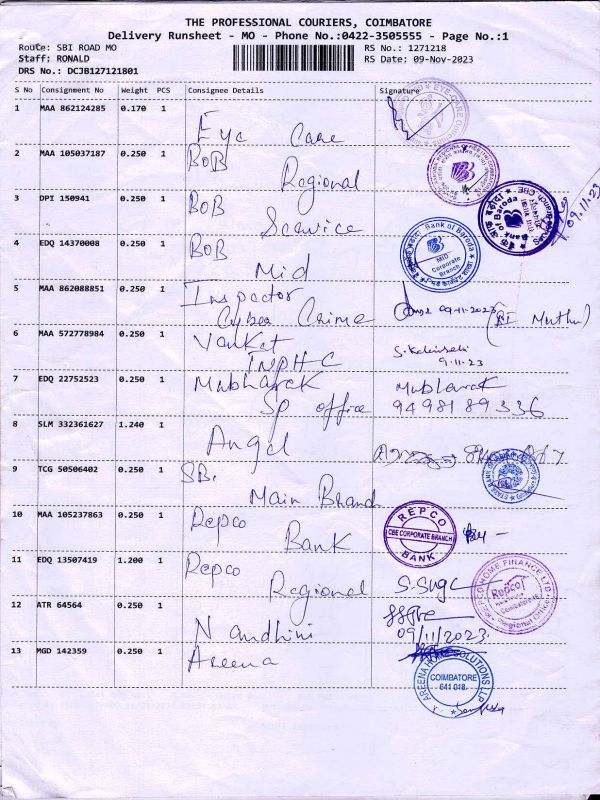 THE PROFESSIONAL COURIERS, COIMBATORE
Delivery Runsheet - MO - Phone No.:0422-3505555 - Page No.:1
Route: SBI ROAD MO
RS No.: 1271218
Staff: RONALD
RS Date: 09-Nov-2023
DRS No.: DCJB127121801
S No Consignment No Weight PCS Consignee Details Signature
1 MAA 862124285 0.170 1
Eye Care
2 MAA 105037187 0.250 1
BOB
Regional
3 DPI 150941 0.250 1
BOB
Service
09.11.23
4 EDQ 14370008 0.250 1
BOB
Mid
Bank of Baroda
MID
Corporate
Branch
5 MAA 862088851 0.250 1
Inspector
Cyber Crime
09.11.2023
6 MAA 572778984 0.250 1
Venkat
TNPHC
9.11.23
7 EDQ 22752523 0.250 1
Mubharak
SP office
Mubarak
9498189336
8 SLM 332361627 1.240 1
Angel
9 TCG 50506402 0.250 1
SB.
Main Branch
10 MAA 105237863 0.250 1
Repco
Bank
REPCO
CBE CORPORATE BRANCH
BANK
11 EDQ 13507419 1.200 1
Repco
Regional
HOME FINANCE LTD
Repco
Regional Office
12 ATR 64564 0.250 1
Nandhini
09/11/2023
13 MGD 142359 0.250 1
Areena
AREENA SOLUTIONS LLP
COIMBATORE
641 018.